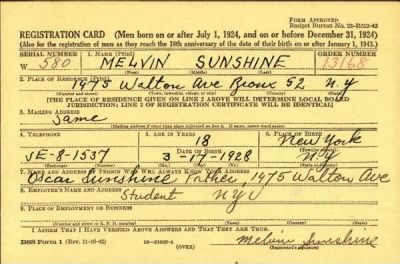 FORM APPROVED
Budget Bureau No. 33-R112-42
REGISTRATION CARD (Men born on or after July 1, 1924, and on or before December 31, 1924)
(Also for the registration of men as they reach the 18th anniversary of the date of their birth on or after January 1, 1943.)
SERIAL NUMBER
1. NAME (Print)
ORDER NUMBER
W 580 MELVIN SUNSHINE 13168
2. PLACE OF RESIDENCE (Print)
1475 Walton Ave Bronx 52 N.Y
[THE PLACE OF RESIDENCE GIVEN ON LINE 2 ABOVE WILL DETERMINE LOCAL BOARD
JURISDICTION; LINE 2 OF REGISTRATION CERTIFICATE WILL BE IDENTICAL]
3. MAILING ADDRESS
Same
4. TELEPHONE
5. AGE IN YEARS
6. PLACE OF BIRTH
18
New York
JE-8-1537
DATE OF BIRTH
3-17-1928
N.Y
7. NAME AND ADDRESS OF PERSON WHO WILL ALWAYS KNOW YOUR ADDRESS
Oscar Sunshine Father, 1475 Walton Ave
8. EMPLOYER'S NAME AND ADDRESS
Student NYU
9. PLACE OF EMPLOYMENT OR BUSINESS
I AFFIRM THAT I HAVE VERIFIED ABOVE ANSWERS AND THAT THEY ARE TRUE.
DSS Form 1
(OVER)
Melvin Sunshine
(Registrant's signature)